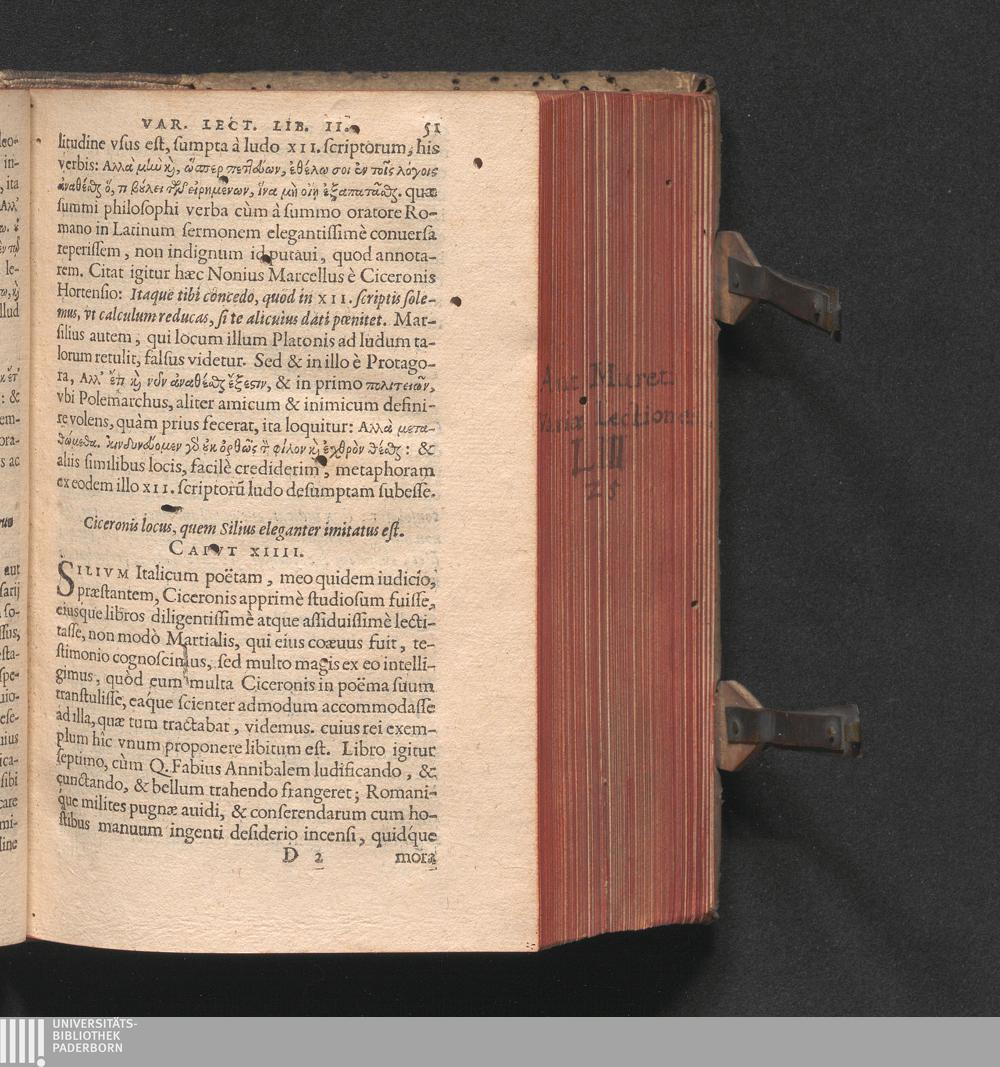 VAR. LECT. LIB. II. 51
litudine vsus est, sumpta à ludo XII. scriptorum, his
verbis: Αλλὰ μὴν κὶ, ὥσπερ πεττεύων, ἐθέλω σοι ἐν τοῖς λόγοις
ἀναθέσθαι ὅ, τι βούλει τῶν εἰρημένων, ἵνα μὴ οἴῃ ἐξαπατᾶσθαι. quæ
summi philosophi verba cùm à summo oratore Ro-
mano in Latinum sermonem elegantissimè conuersa
reperissem, non indignum id putaui, quod annota-
rem. Citat igitur hæc Nonius Marcellus è Ciceronis
Hortensio: Itaque tibi concedo, quod in XII. scriptis sole-
mus, vt calculum reducas, si te alicuius dati pœnitet. Mar-
silius autem, qui locum illum Platonis ad ludum ta-
lorum retulit, falsus videtur. Sed & in illo è Protago-
ra, Αλλ' ἔτι κὶ νῦν ἀναθέσθαι ἔξεστιν, & in primo πολιτειῶν,
vbi Polemarchus, aliter amicum & inimicum defini-
re volens, quàm prius fecerat, ita loquitur: Αλλὰ μετα-
θώμεθα. κινδυνεύομεν γὸ οὐκ ὀρθῶς τ φίλον κὶ ἐχθρὸν θέσθαι: &
aliis similibus locis, facilè crediderim, metaphoram
ex eodem illo XII. scriptorũ ludo desumptam subesse.
Ciceronis locus, quem Silius eleganter imitatus est.
CAPVT XIIII.
SILIVM Italicum poëtam, meo quidem iudicio,
præstantem, Ciceronis apprimè studiosum fuisse,
eiusque libros diligentissimè atque assiduissimè lecti-
tasse, non modò Martialis, qui eius coæuus fuit, te-
stimonio cognoscimus, sed multo magis ex eo intelli-
gimus, quòd eum multa Ciceronis in poëma suum
transtulisse, eáque scienter admodum accommodasse
ad illa, quæ tum tractabat, videmus. cuius rei exem-
plum hîc vnum proponere libitum est. Libro igitur
septimo, cùm Q. Fabius Annibalem ludificando, &
cunctando, & bellum trahendo frangeret; Romani-
que milites pugnæ auidi, & conserendarum cum ho-
stibus manuum ingenti desiderio incensi, quidque
D 2 mora
Ant Mureti
Variæ Lectiones
LIII
25
UNIVERSITÄTS-
BIBLIOTHEK
PADERBORN